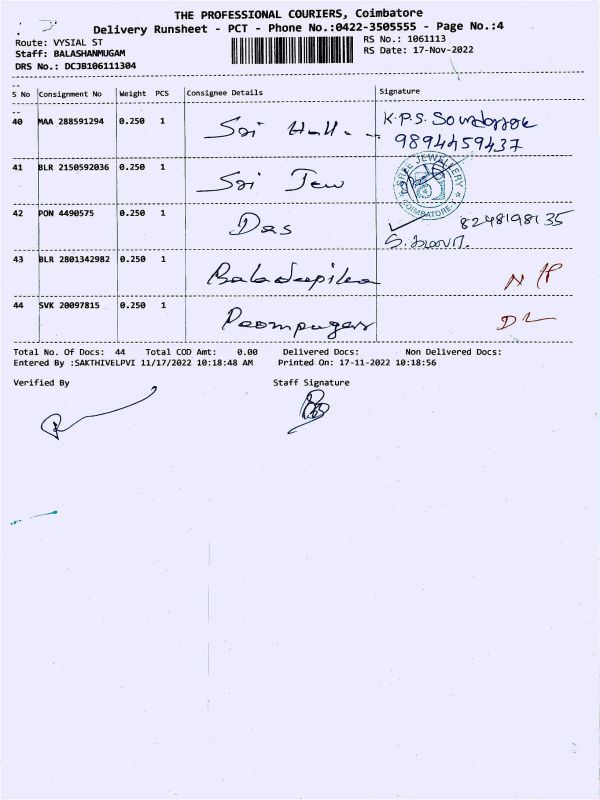 THE PROFESSIONAL COURIERS, Coimbatore
Delivery Runsheet - PCT - Phone No.:0422-3505555 - Page No.:4
Route: VYSIAL ST
RS No.: 1061113
Staff: BALASHANMUGAM
RS Date: 17-Nov-2022
DRS No.: DCJB106111304
S No Consignment No Weight PCS Consignee Details Signature
40 MAA 288591294 0.250 1 Sri K.P.S.
9894459437
41 BLR 2150592036 0.250 1 Sri Jew
SHREE JEWELLERY COIMBATORE-1
42 PON 4490575 0.250 1 Das 8248198135
43 BLR 2801342982 0.250 1 Baladeepika
44 SVK 20097815 0.250 1 Poompuger DL
Total No. Of Docs: 44 Total COD Amt: 0.00 Delivered Docs: Non Delivered Docs:
Entered By :SAKTHIVELPVI 11/17/2022 10:18:48 AM Printed On: 17-11-2022 10:18:56
Verified By Staff Signature